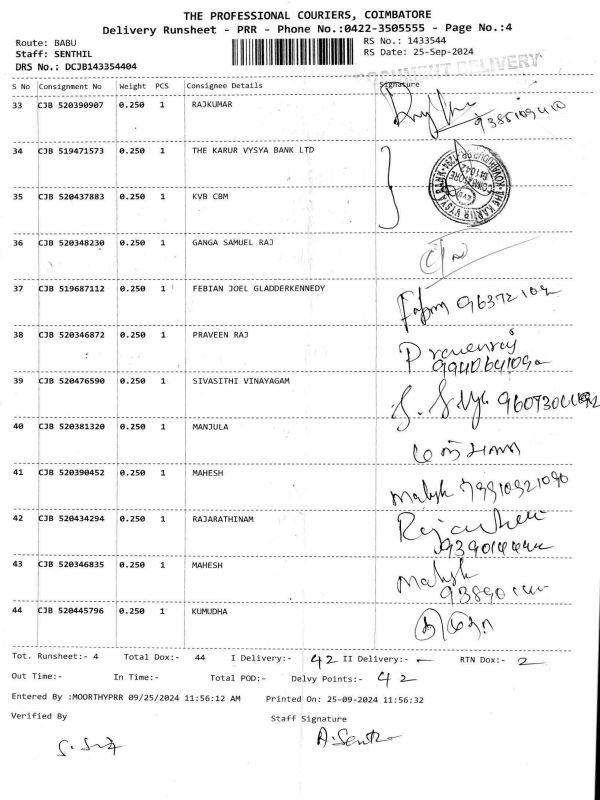 THE PROFESSIONAL COURIERS, COIMBATORE
Delivery Runsheet - PRR - Phone No.:0422-3505555 - Page No.:4
Route: BABU
Staff: SENTHIL
DRS No.: DCJB143354404
RS No.: 1433544
RS Date: 25-Sep-2024
DOCUMENT DELIVERY
S No Consignment No Weight PCS Consignee Details Signature
33 CJB 520390907 0.250 1 RAJKUMAR
34 CJB 519471573 0.250 1 THE KARUR VYSYA BANK LTD
35 CJB 520437883 0.250 1 KVB CBM
36 CJB 520348230 0.250 1 GANGA SAMUEL RAJ
37 CJB 519687112 0.250 1 FEBIAN JOEL GLADDERKENNEDY
38 CJB 520346872 0.250 1 PRAVEEN RAJ
Praveenraj
39 CJB 520476590 0.250 1 SIVASITHI VINAYAGAM
40 CJB 520381320 0.250 1 MANJULA
41 CJB 520390452 0.250 1 MAHESH
42 CJB 520434294 0.250 1 RAJARATHINAM
43 CJB 520346835 0.250 1 MAHESH
44 CJB 520445796 0.250 1 KUMUDHA
Tot. Runsheet:- 4 Total Dox:- 44 I Delivery:- 42 II Delivery:- - RTN Dox:- 2
Out Time:- In Time:- Total POD:- Delvy Points:- 42
Entered By :MOORTHYPRR 09/25/2024 11:56:12 AM Printed On: 25-09-2024 11:56:32
Verified By Staff Signature